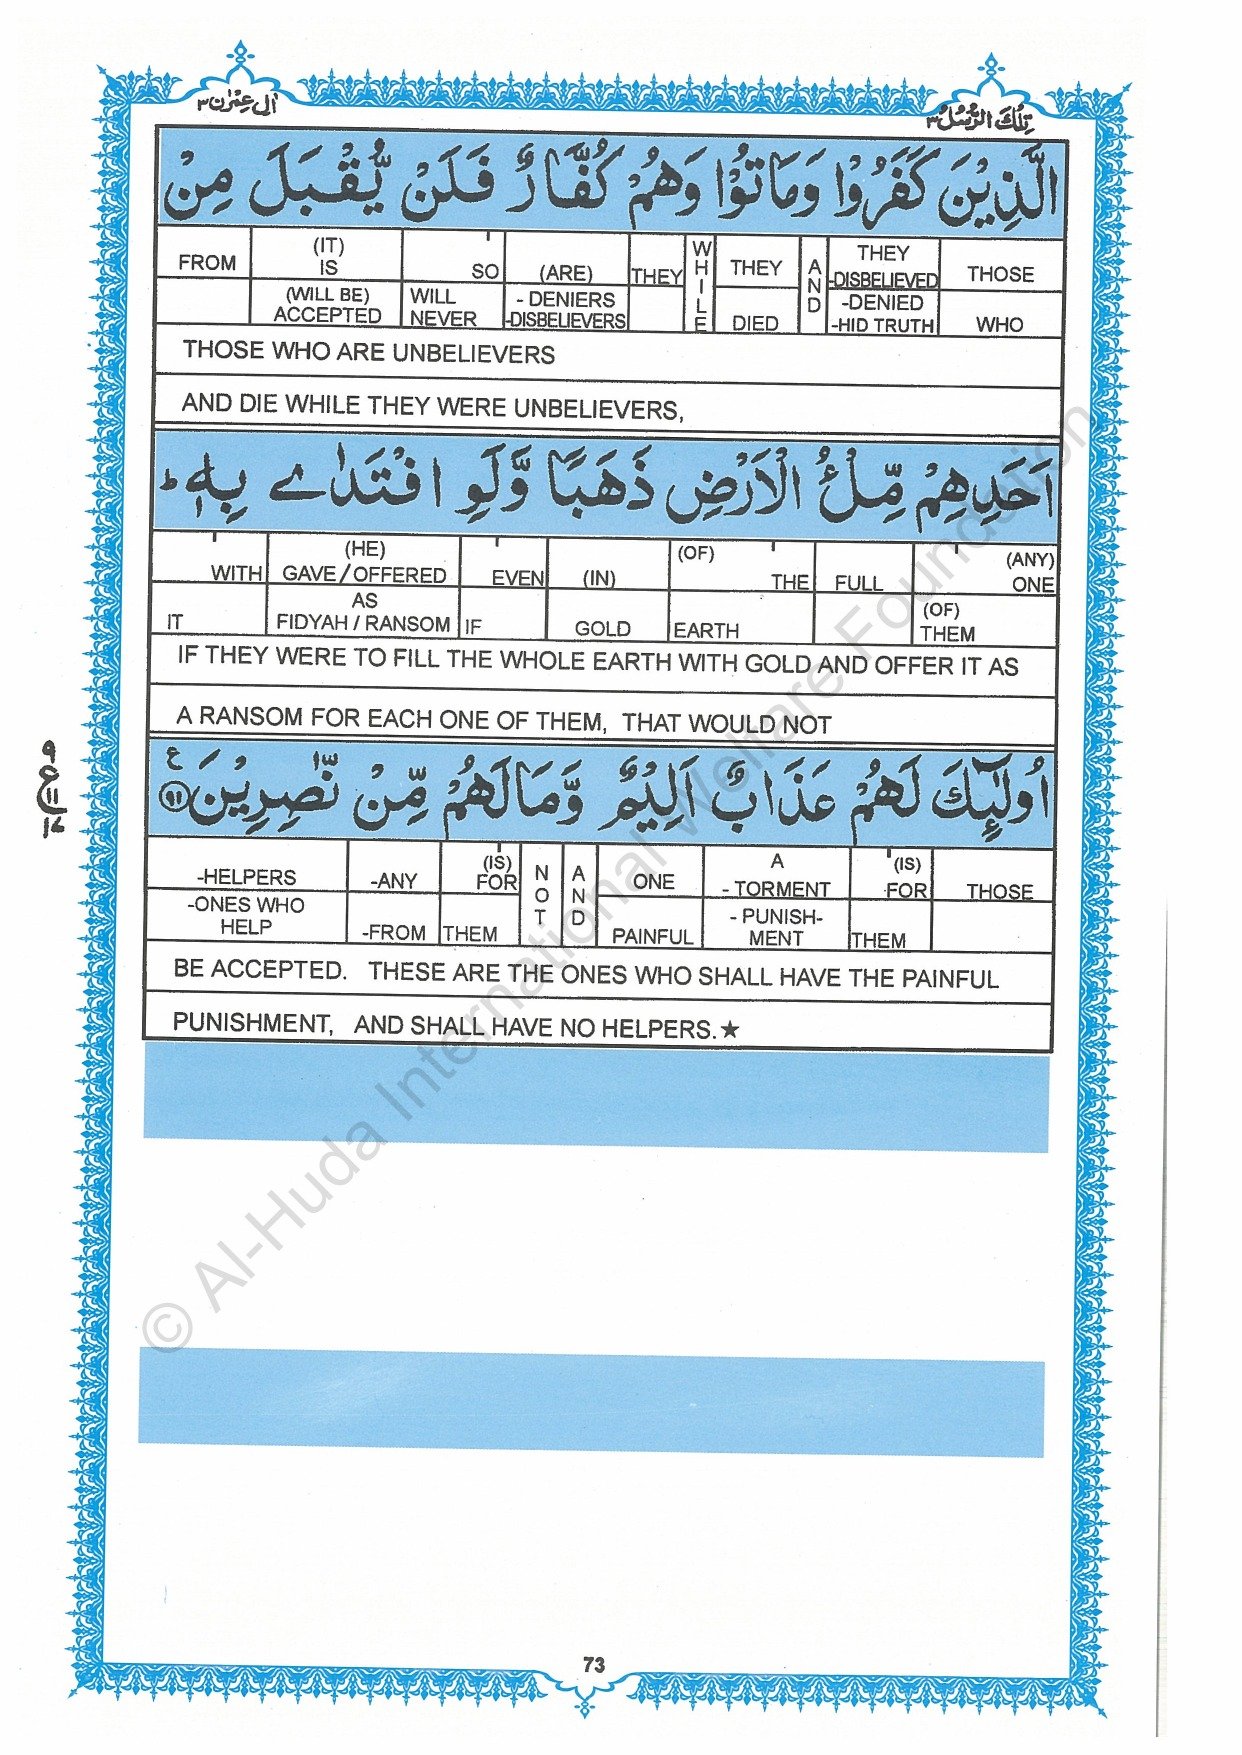 اٰل عِمْرٰن ٣
تِلْكَ الرُّسُلُ ٣
الَّذِيْنَ كَفَرُوْا وَمَاتُوْا وَهُمْ كُفَّارٌ فَلَنْ يُّقْبَلَ مِنْ
FROM (IT) IS SO (ARE) THEY WHILE THEY AND THEY -DISBELIEVED THOSE
(WILL BE) ACCEPTED WILL NEVER - DENIERS -DISBELIEVERS DIED -DENIED -HID TRUTH WHO
THOSE WHO ARE UNBELIEVERS
AND DIE WHILE THEY WERE UNBELIEVERS,
اَحَدِهِمْ مِّلْءُ الْاَرْضِ ذَهَبًا وَّلَوِ افْتَدٰى بِهٖ ؕ
WITH (HE) GAVE/OFFERED EVEN (IN) (OF) THE FULL (ANY) ONE
IT AS FIDYAH / RANSOM IF GOLD EARTH (OF) THEM
IF THEY WERE TO FILL THE WHOLE EARTH WITH GOLD AND OFFER IT AS
A RANSOM FOR EACH ONE OF THEM, THAT WOULD NOT
اُولٰٓئِكَ لَهُمْ عَذَابٌ اَلِيْمٌ وَّمَا لَهُمْ مِّنْ نّٰصِرِيْنَ ﴿٩١﴾ ع
-HELPERS -ANY (IS) FOR NOT AND ONE A - TORMENT (IS) FOR THOSE
-ONES WHO HELP -FROM THEM PAINFUL - PUNISH- MENT THEM
BE ACCEPTED. THESE ARE THE ONES WHO SHALL HAVE THE PAINFUL
PUNISHMENT, AND SHALL HAVE NO HELPERS.★
٩
ع
١١
١٧
© Al-Huda International Welfare Foundation
73